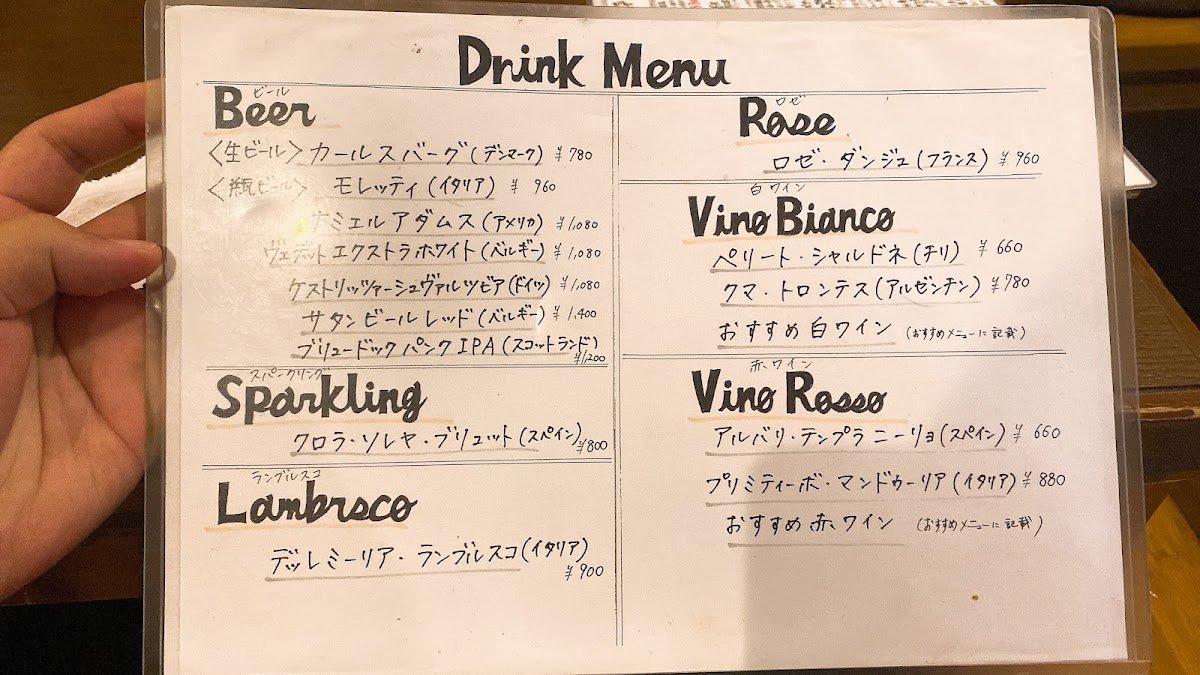 Drink Menu
ビール
Beer
〈生ビール〉 カールスバーグ(デンマーク) ¥780
〈瓶ビール〉 モレッティ(イタリア) ¥ 960
サミエルアダムス(アメリカ) ¥1,080
ヴェデットエクストラホワイト(ベルギー) ¥1,080
ケストリッツァーシュヴァルツビア(ドイツ) ¥1,080
サタンビールレッド(ベルギー) ¥1,400
ブリュードックパンクIPA(スコットランド)
¥1,200
スパンクリング
Sparkling
クロラ・ソレヤ・ブリュット(スペイン) ¥800
ランブルスコ
Lambrsco
デッレミーリア・ランブルスコ(イタリア)
¥900
ロゼ
Rose
ロゼ・ダンジュ(フランス) ¥960
白ワイン
Vino Bianco
ペリート・シャルドネ(チリ) ¥660
クマ・トロンテス(アルゼンチン) ¥780
おすすめ白ワイン (おすすめメニューに記載)
赤ワイン
Vino Rosso
アルバリ・テンプラニーリョ(スペイン) ¥ 660
プリミティーボ・マンドゥーリア(イタリア) ¥880
おすすめ赤ワイン (おすすめメニューに記載)